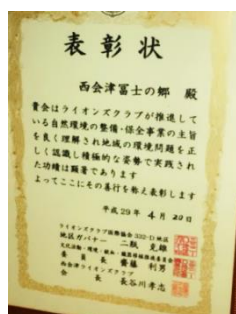 表彰状
西会津冨士の郷　殿
貴会はライオンズクラブが推進して
いる自然環境の整備・保全事業の主旨
を良く理解され地域の環境問題を正
しく認識し積極的な姿勢で実践され
た功績は顕著であります
よってここにその善行を称え表彰します
平成29年 4月 20日
ライオンズクラブ国際協会332-D地区
地区ガバナー　二瓶　克雄
委員長　齋藤　利男
西会津ライオンズクラブ
会長　長谷川孝志